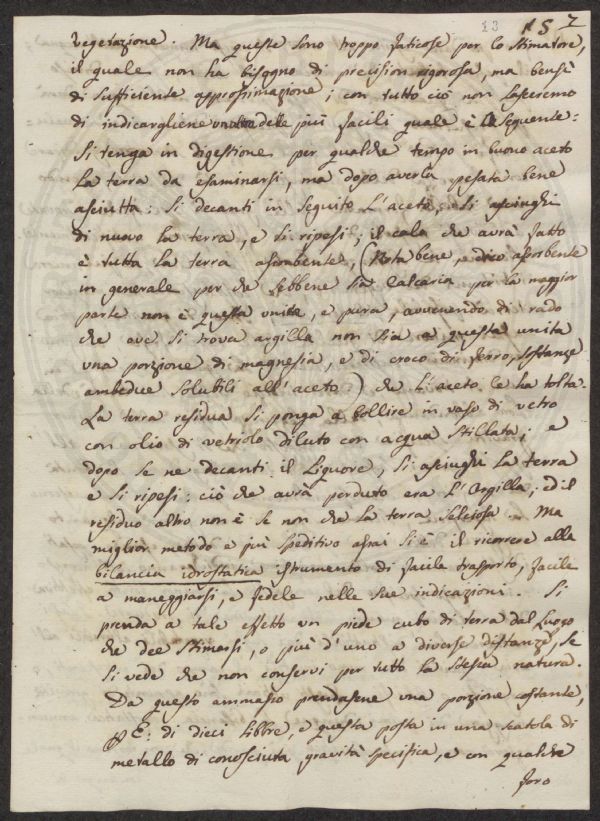 13 152
vegetazione. Ma queste sono troppo faticose per lo Stimatore,
il quale non ha bisogno di precision rigorosa, ma bensì
di sufficiente approssimazione; con tutto ciò non lasceremo
di indicargliene delle più facili quale è la seguente:
Si tenga in digestione per qualche tempo in buono aceto
la terra da esaminarsi, ma dopo averla pesata bene
asciutta: si decanti in seguito l'aceto, si asciughi
di nuovo la terra, e si ripesi; il calo che avrà fatto
è tutta la terra assorbente, (Nota bene, dico assorbente
in generale per che sebbene sia calcaria per la maggior
parte non è questa unita, e pura, avvenendo di rado
che ove si trova argilla non sia a questa unita
una porzione di magnesia, e di croco di ferro, sostanze
ambedue solubili all'aceto) che l'aceto le ha tolta.
La terra residua si ponga a bollire in vaso di vetro
con olio di vetriolo diluto con acqua stillata; e
dopo se ne decanti il liquore, si asciughi la terra
e si ripesi: ciò che avrà perduto era l'Argilla; ed il
residuo altro non è se non che la terra selciosa. Ma
miglior metodo e più speditivo assai si è il ricorrere alla
bilancia idrostatica istrumento di facile trasporto, facile
a maneggiarsi, e fedele nelle sue indicazioni. Si
prenda a tale effetto un piede cubo di terra dal Luogo
che dee Stimarsi, o più d'uno a diverse distanze, se
si vede che non conservi per tutto la stessa natura.
Da questo ammasso prendasene una porzione costante,
P. E: di dieci libbre, e questa posta in una scatola di
metallo di conosciuta gravità specifica, e con qualche
foro